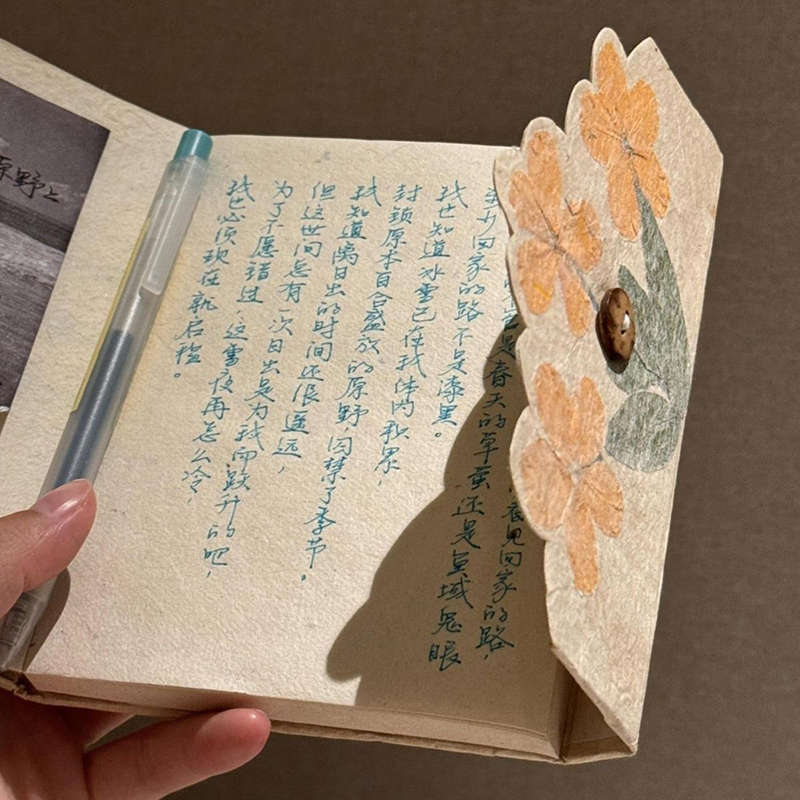 原野上
夜见回家的路，
不管是春天的草萤还是鱼域鬼眼
回家的路不是漆黑。
我也知道冰雪已在我体内积累，
封锁原本百合盛放的原野，囚禁了季节。
我知道离日出的时间还很遥远，
但这世间总有一次日出是为我而跃升的吧，
为了不愿错过，这雪夜再怎么冷，
我也必须现在就启程。